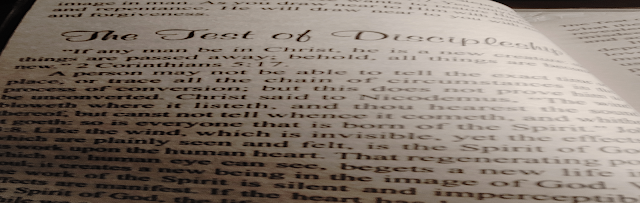 image in man. As you draw near to
and forgiveness. He will draw near to you
The Test of Discipleship
"If any man be in Christ, he is a new creature:
things are passed away; behold, all things
new." 2 Corinthians 5:17.
A person may not be able to tell the exact time
place, or trace all the chain of circumstances in
process of conversion; but this does not prove
be unconverted. Christ said to Nicodemus, "The wind
bloweth where it listeth, and thou hearest the
thereof, but canst not tell whence it cometh, and whither
goeth: so is everyone that is born of the Spirit." John
3:8. Like the wind, which is invisible, yet the effects
are plainly seen and felt, is the Spirit of God
work upon the human heart. That regenerating power
which no human eye can see, begets a new life
soul; it creates a new being in the image of God.
work of the Spirit is silent and imperceptible
effects are manifest. If the heart has
Spirit of God, the